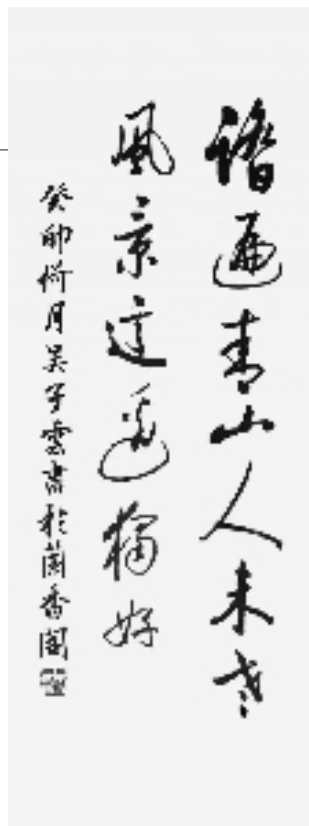 踏遍青山人未老
風景這邊獨好
癸卯荷月吴子雲書於蘭香閣